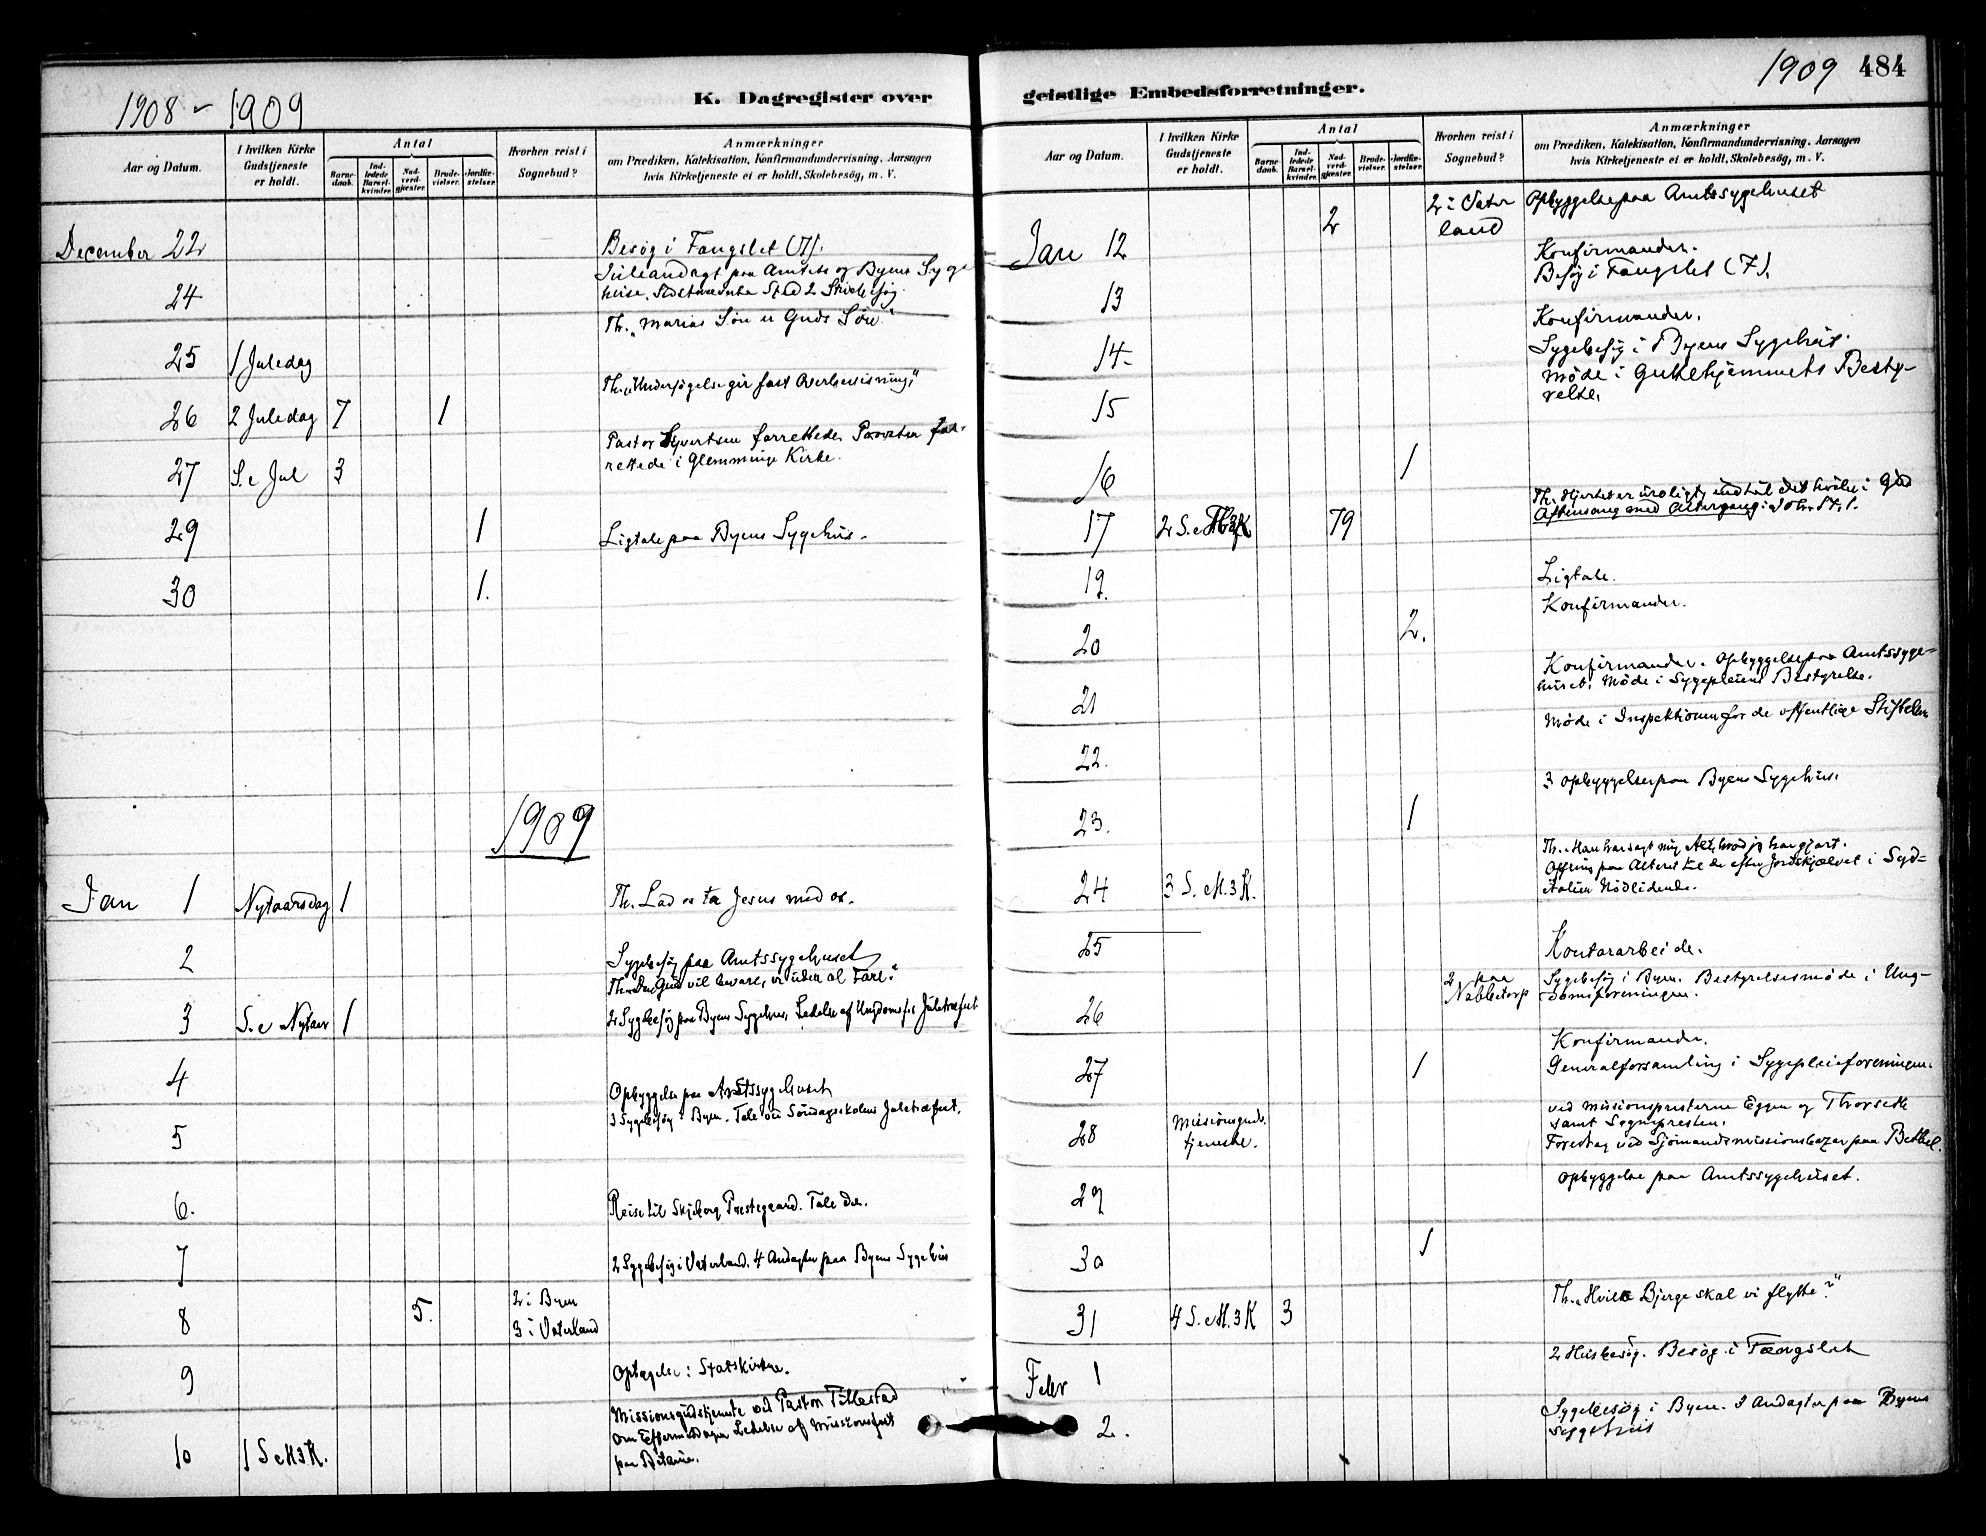 1908 - 1909
K. Dagregister over
Aar og Datum.
I hvilken Kirke Gudstjeneste er holdt.
Antal
Barne-daab.
Ind-ledede Barsel-kvinder.
Nad-verd-gjæster.
Brude-vielser.
Jordfæ-stelser.
Hvorhen reist i Sognebud?
Anmærkninger
om Prædiken, Katekisation, Konfirmandundervisning, Aarsagen
hvis Kirketjeneste ei er holdt, Skolebesög, m. V.
December 22
Besög i Fængslet (7).
24
Juleandagt paa Amtets og Byens Syge
huse.
Th. "Marias Sön er Guds Sön"
25 1 Juledag
Th. "Undersögelse gir fast Overbevisning"
26 2 Juledag 7 1
Pastor Syvertsen forrettede. Provsten for-
rettede i Glemminge Kirke.
27 S. e Jul 3
29 1 Ligtale paa Byens Sygehus.
30 1.
1909
Jan 1 Nytaarsdag 1 Th. Lad os ta Jesus med os.
2 Sygebesög paa Amtssygehuset
Gud vil bevare, vi uden al Fare."
3 S. e Nytaar 1 2 Sygebesög paa Byens Sygehus, Ledelse af Ungdomsf.s Juletræfest
4
Opbyggelse paa Amtssygehuset
3 Sygebesög i Byen. Tale ved Söndagsskolens Juletræfest.
5
6. Reise til Skjeberg Prestegaard. Tale der.
7 2 Sygebesög i Vaterland. 4 Andagter paa Byens Sygehus
8 5. 2 i Byen
3 i Vaterland
9 Optagelse i Statskirken.
Missionsgudstjeneste ved Pastor Tillestad
Om Eftermiddagen Ledelse af Missionsfest
10 1 S e H3K. paa Betania.
1909 484
geistlige Embedsforretninger.
Aar og Datum.
I hvilken Kirke Gudstjeneste er holdt.
Antal
Barne-daab.
Ind-ledede Barsel-kvinder.
Nad-verd-gjæster.
Brude-vielser.
Jordfæ-stelser.
Hvorhen reist i Sognebud?
Anmærkninger
om Prædiken, Katekisation, Konfirmandundervisning, Aarsagen
hvis Kirketjeneste ei er holdt, Skolebesög, m. V.
2 2 i Vater
land
Opbyggelse paa Amtssygehuset
Jan 12
Konfirmander.
Besög i Fængslet (7).
13
Konfirmander.
14 Sygebesög i Byens Sygehus.
Möde i Guttehjemmets Besty-
relse.
15
16 1
Th. Hjertet er uroligt indtil det hviler i Gud
Aftensang med Altergang
17 2 S. e H3K 79
19. Ligtale.
Konfirmander.
20 2.
Konfirmander. Opbyggelse paa Amtssyge-
huset. Möde i Sygepleiens Bestyrelse.
21
Möde i Inspektionen for de offentlige Stiftelser
22.
3 Opbyggelser paa Byens Sygehus.
23. 1
Th. Han har sagt mig Alt, hvad jeg har gjort.
Offring paa Alteret til de efter Jordskjælvet i Syd-
italien Nödlidende.
24 3 S. e H. 3 K.
25 Kontorarbeide.
2 paa
Nabbetorp
Sygebesög i Byen. Bestyrelsesmöde i Ung-
domsforeningen.
26
Konfirmander.
27 1 Generalforsamling i Sygepleieforeningen.
28 Missionsguds.
tjeneste.
ved Missionspresterne Eggen og Thorseth
samt Sognepresten.
Foredrag ved Sjömandsmissionsbazar paa Bethel.
29 Opbyggelse paa Amtssygehuset.
30 1
31 4 S. e H. 3 K 3 Th. "Hvilke Bjerge skal vi flytte?"
Febr 1 2 Husbesög. Besög i Fængslet
2. Sygebesög i Byen. 3 Andagter paa Byens
Sygehus